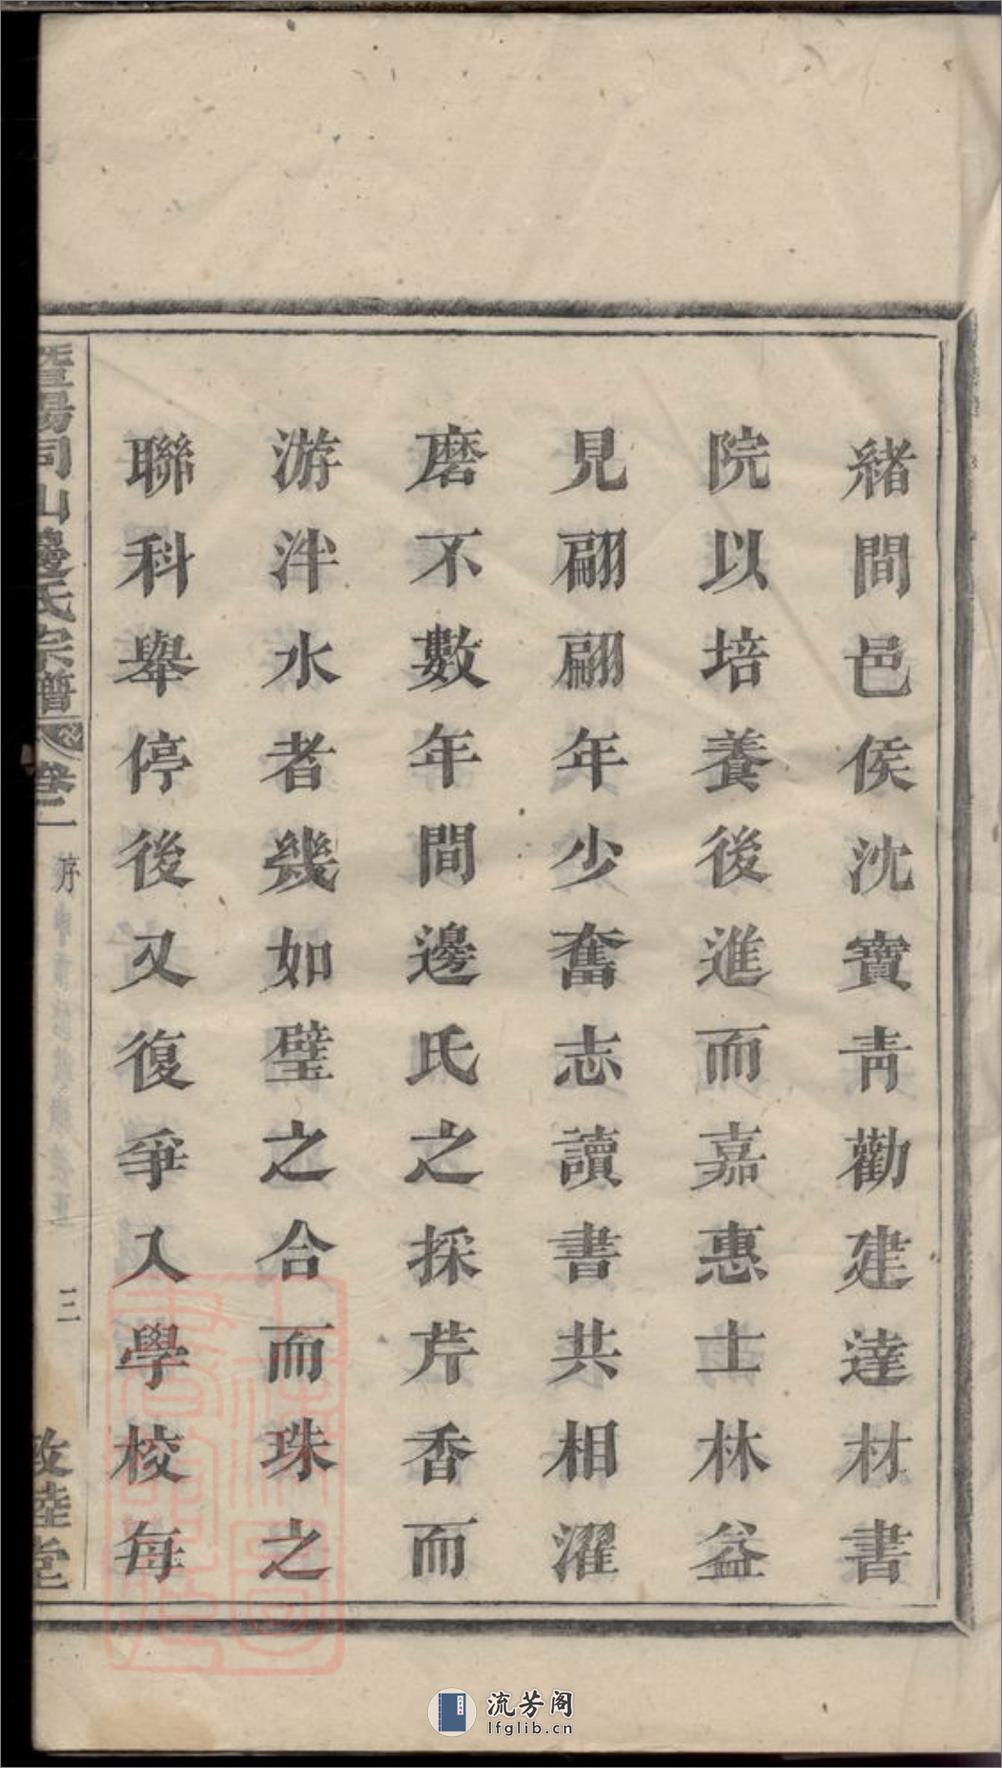 緒間邑侯沈寶青勸建達材書
院以培養後進而嘉惠士林益
見翩翩年少奮志讀書共相濯
磨不數年間邊氏之採芹香而
游泮水者幾如璧之合而珠之
聯科舉停後又復爭入學校每
暨陽同山邊氏宗譜 卷一 序 三 敦睦堂
流芳阁
lfglib.cn